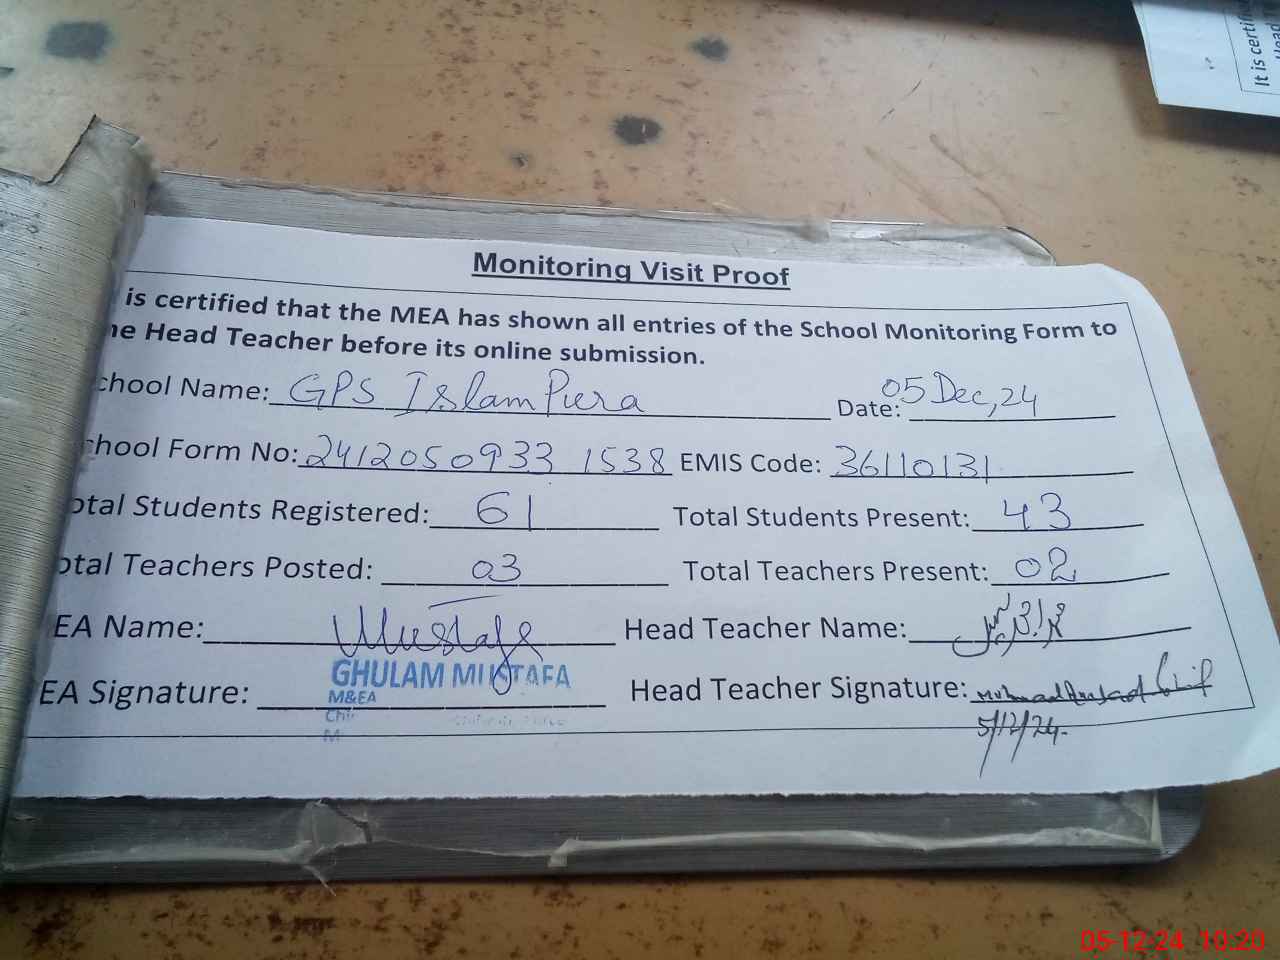 Monitoring Visit Proof
is certified that the MEA has shown all entries of the School Monitoring Form to
he Head Teacher before its online submission.
chool Name: GPS Islam Pura Date: 05 Dec, 24
chool Form No: 2412050933 1538 EMIS Code: 36110131
otal Students Registered: 61 Total Students Present: 43
otal Teachers Posted: 03 Total Teachers Present: 02
EA Name: Mustafa Head Teacher Name:
GHULAM MUSTAFA
M&EA
EA Signature: Head Teacher Signature:
5/12/24
It is certifi
Head
05-12-24 10:20